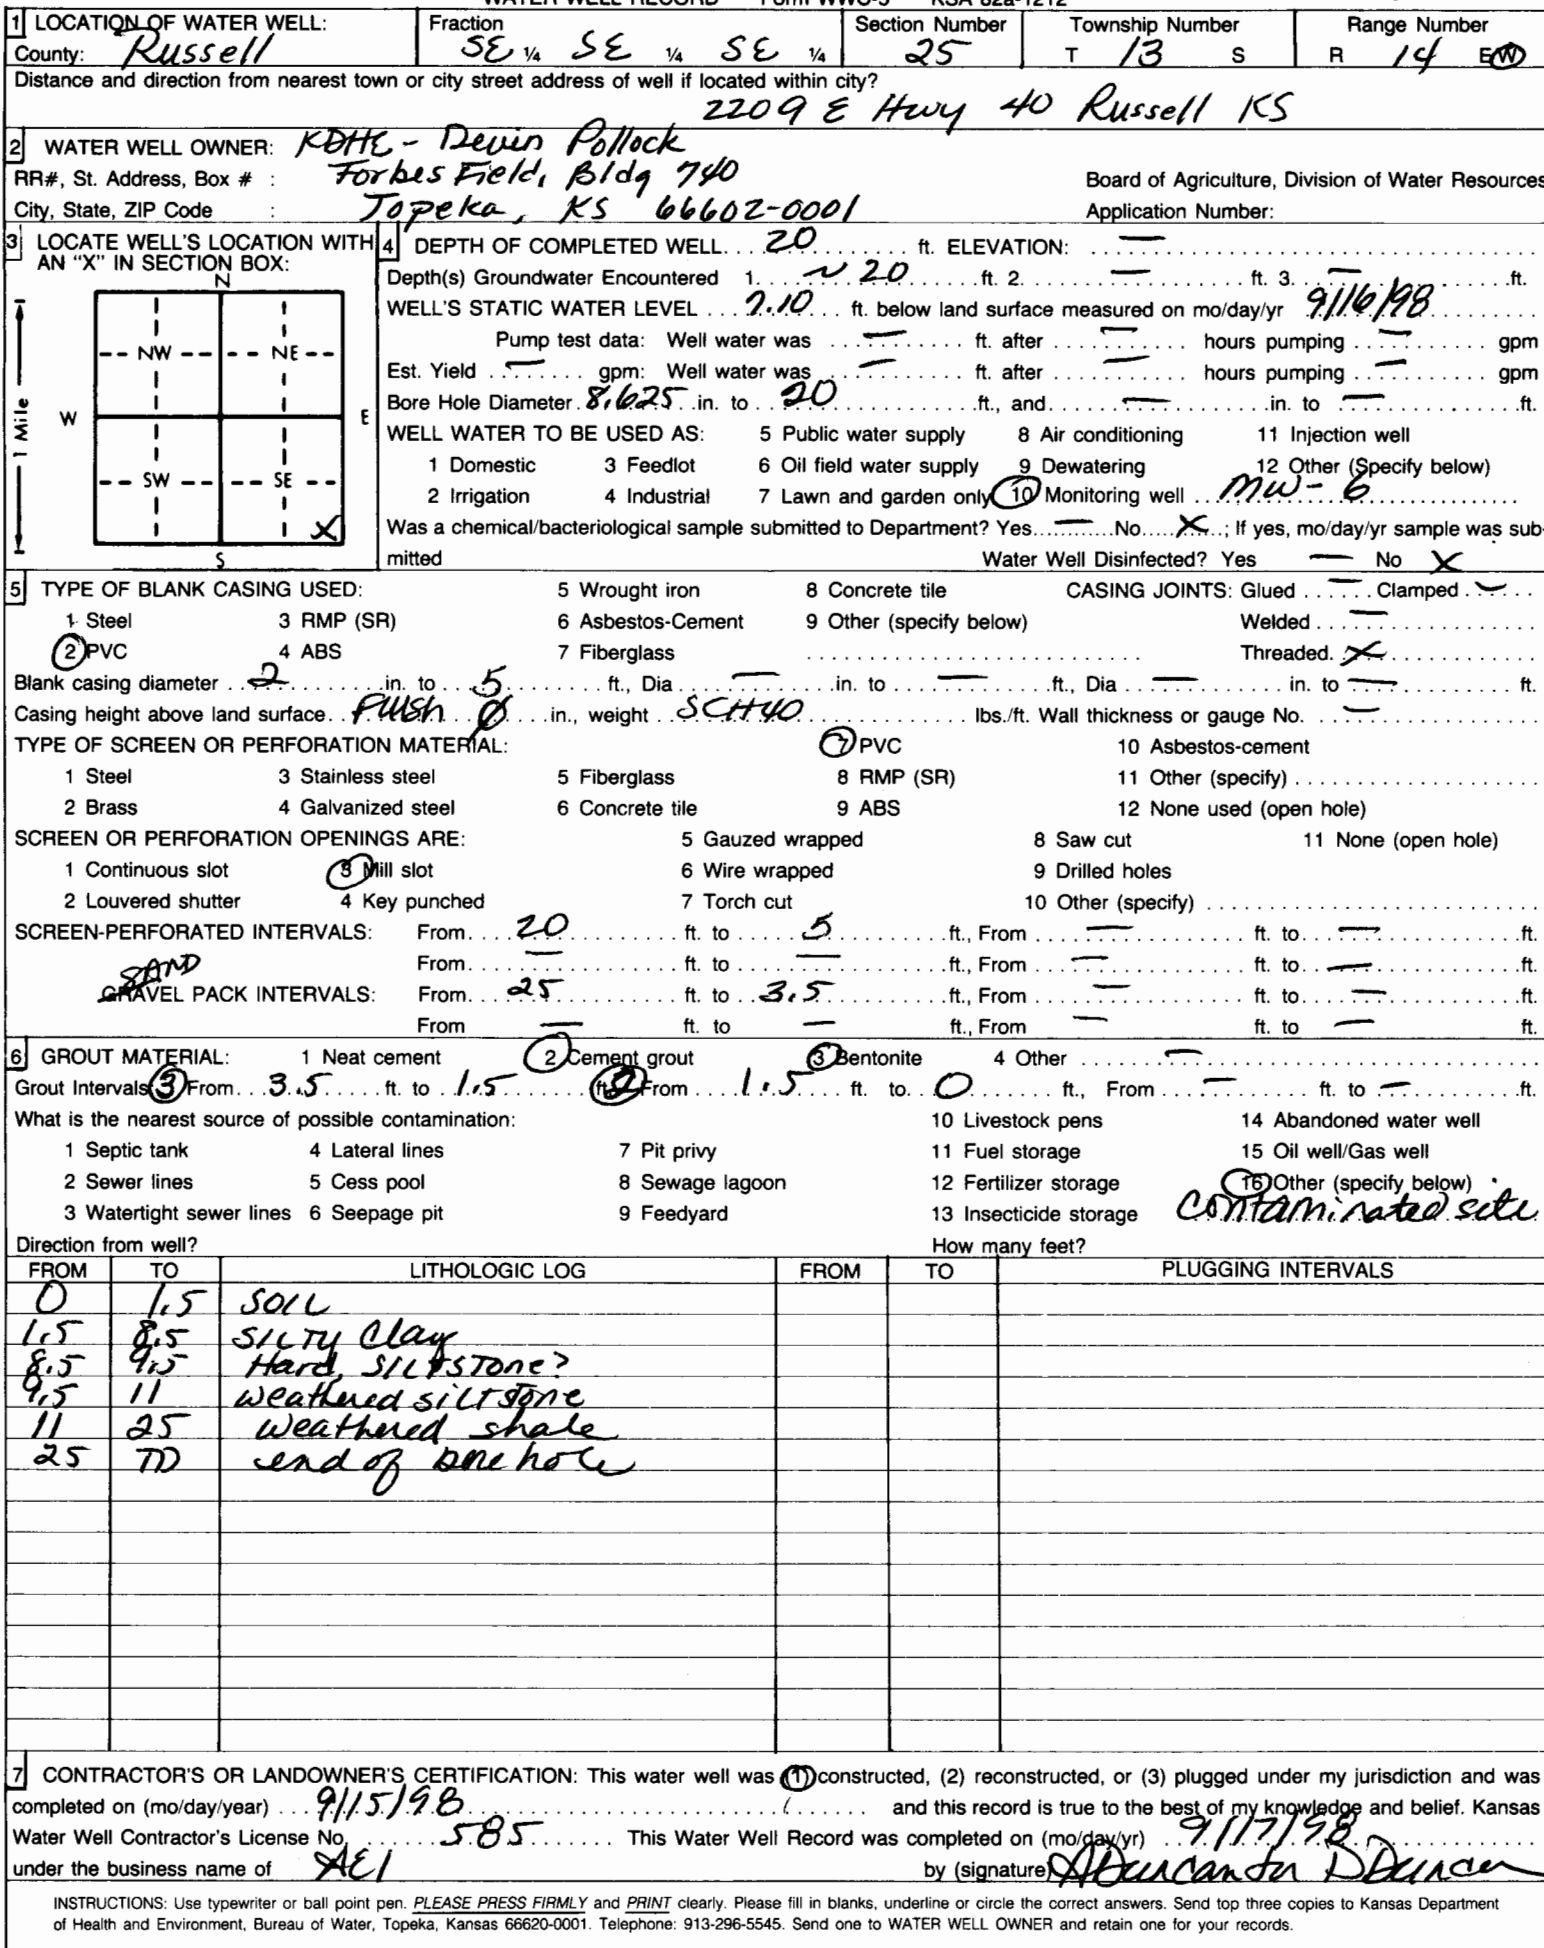 WATER WELL RECORD Form WWC-5 KSA 82a-1212
1 LOCATION OF WATER WELL: Fraction Section Number Township Number Range Number
County: Russell SE ¼ SE ¼ SE ¼ 25 T 13 S R 14 E(W)
Distance and direction from nearest town or city street address of well if located within city?
2209 E Hwy 40 Russell KS
2 WATER WELL OWNER: KDHE - Devin Pollock
RR#, St. Address, Box # : Forbes Field, Bldg 740 Board of Agriculture, Division of Water Resources
City, State, ZIP Code : Topeka, KS 66602-0001 Application Number:
3 LOCATE WELL'S LOCATION WITH
AN "X" IN SECTION BOX:
N
NW NE
W E
1 Mile
SW SE
X
S
4 DEPTH OF COMPLETED WELL.... 20 ........ ft. ELEVATION: .... — ....
Depth(s) Groundwater Encountered 1. ~ 20 ft. 2. — ft. 3. — ft.
WELL'S STATIC WATER LEVEL ... 7.10 ... ft. below land surface measured on mo/day/yr 9/16/98
Pump test data: Well water was ... — ... ft. after ... — ... hours pumping ... — ... gpm
Est. Yield ... — ... gpm: Well water was ... — ... ft. after ... — ... hours pumping ... — ... gpm
Bore Hole Diameter. 8.625 ..in. to .. 20 ... ft., and ... — ... in. to ... — ... ft.
WELL WATER TO BE USED AS: 5 Public water supply 8 Air conditioning 11 Injection well
1 Domestic 3 Feedlot 6 Oil field water supply 9 Dewatering 12 Other (Specify below)
2 Irrigation 4 Industrial 7 Lawn and garden only (10) Monitoring well ... MW-6 ...
Was a chemical/bacteriological sample submitted to Department? Yes... — ...No... X ...; If yes, mo/day/yr sample was sub-
mitted Water Well Disinfected? Yes — No X
5 TYPE OF BLANK CASING USED: 5 Wrought iron 8 Concrete tile CASING JOINTS: Glued ... — ... Clamped . — ...
1 Steel 3 RMP (SR) 6 Asbestos-Cement 9 Other (specify below) Welded ... — ...
(2) PVC 4 ABS 7 Fiberglass ........ Threaded. X ...
Blank casing diameter ... 2 ... in. to ... 5 ... ft., Dia ... — ... in. to ... — ... ft., Dia ... — ... in. to — ... ft.
Casing height above land surface.. Flush Ø ... in., weight .. SCH40 ... lbs./ft. Wall thickness or gauge No. .. — ...
TYPE OF SCREEN OR PERFORATION MATERIAL: (7) PVC 10 Asbestos-cement
1 Steel 3 Stainless steel 5 Fiberglass 8 RMP (SR) 11 Other (specify) ........
2 Brass 4 Galvanized steel 6 Concrete tile 9 ABS 12 None used (open hole)
SCREEN OR PERFORATION OPENINGS ARE: 5 Gauzed wrapped 8 Saw cut 11 None (open hole)
1 Continuous slot (3) Mill slot 6 Wire wrapped 9 Drilled holes
2 Louvered shutter 4 Key punched 7 Torch cut 10 Other (specify) ........
SCREEN-PERFORATED INTERVALS: From.... 20 .... ft. to .... 5 .... ft., From ... — ... ft. to... — ... ft.
From... — ... ft. to ... — ... ft., From ... — ... ft. to... — ... ft.
SAND
GRAVEL PACK INTERVALS: From... 25 ... ft. to .. 3.5 ... ft., From ... — ... ft. to... — ... ft.
From — ft. to — ft., From — ft. to — ft.
6 GROUT MATERIAL: 1 Neat cement (2) Cement grout (3) Bentonite 4 Other ... — ...
Grout Intervals (3) From... 3.5 ... ft. to 1.5 ft. (2) From ... 1.5 ... ft. to.. 0 ... ft., From ... — ... ft. to — ... ft.
What is the nearest source of possible contamination: 10 Livestock pens 14 Abandoned water well
1 Septic tank 4 Lateral lines 7 Pit privy 11 Fuel storage 15 Oil well/Gas well
2 Sewer lines 5 Cess pool 8 Sewage lagoon 12 Fertilizer storage (16) Other (specify below)
3 Watertight sewer lines 6 Seepage pit 9 Feedyard 13 Insecticide storage contaminated site
Direction from well? How many feet?
FROM TO LITHOLOGIC LOG FROM TO PLUGGING INTERVALS
0 1.5 SOIL
1.5 8.5 SILTY Clay
8.5 9.5 Hard, SILTSTONE?
9.5 11 weathered siltstone
11 25 weathered shale
25 TD end of borehole
7 CONTRACTOR'S OR LANDOWNER'S CERTIFICATION: This water well was (1) constructed, (2) reconstructed, or (3) plugged under my jurisdiction and was
completed on (mo/day/year) ... 9/15/98 ... and this record is true to the best of my knowledge and belief. Kansas
Water Well Contractor's License No. ... 585 ... This Water Well Record was completed on (mo/day/yr) .. 9/17/98 ...
under the business name of AEI by (signature) ADuncan for DDuncan
INSTRUCTIONS: Use typewriter or ball point pen. PLEASE PRESS FIRMLY and PRINT clearly. Please fill in blanks, underline or circle the correct answers. Send top three copies to Kansas Department
of Health and Environment, Bureau of Water, Topeka, Kansas 66620-0001. Telephone: 913-296-5545. Send one to WATER WELL OWNER and retain one for your records.